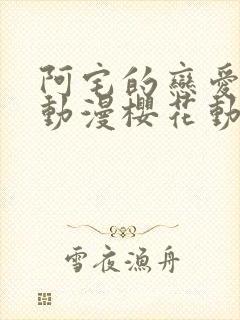 阿宅的戀愛
動漫櫻花動
雪夜漁舟